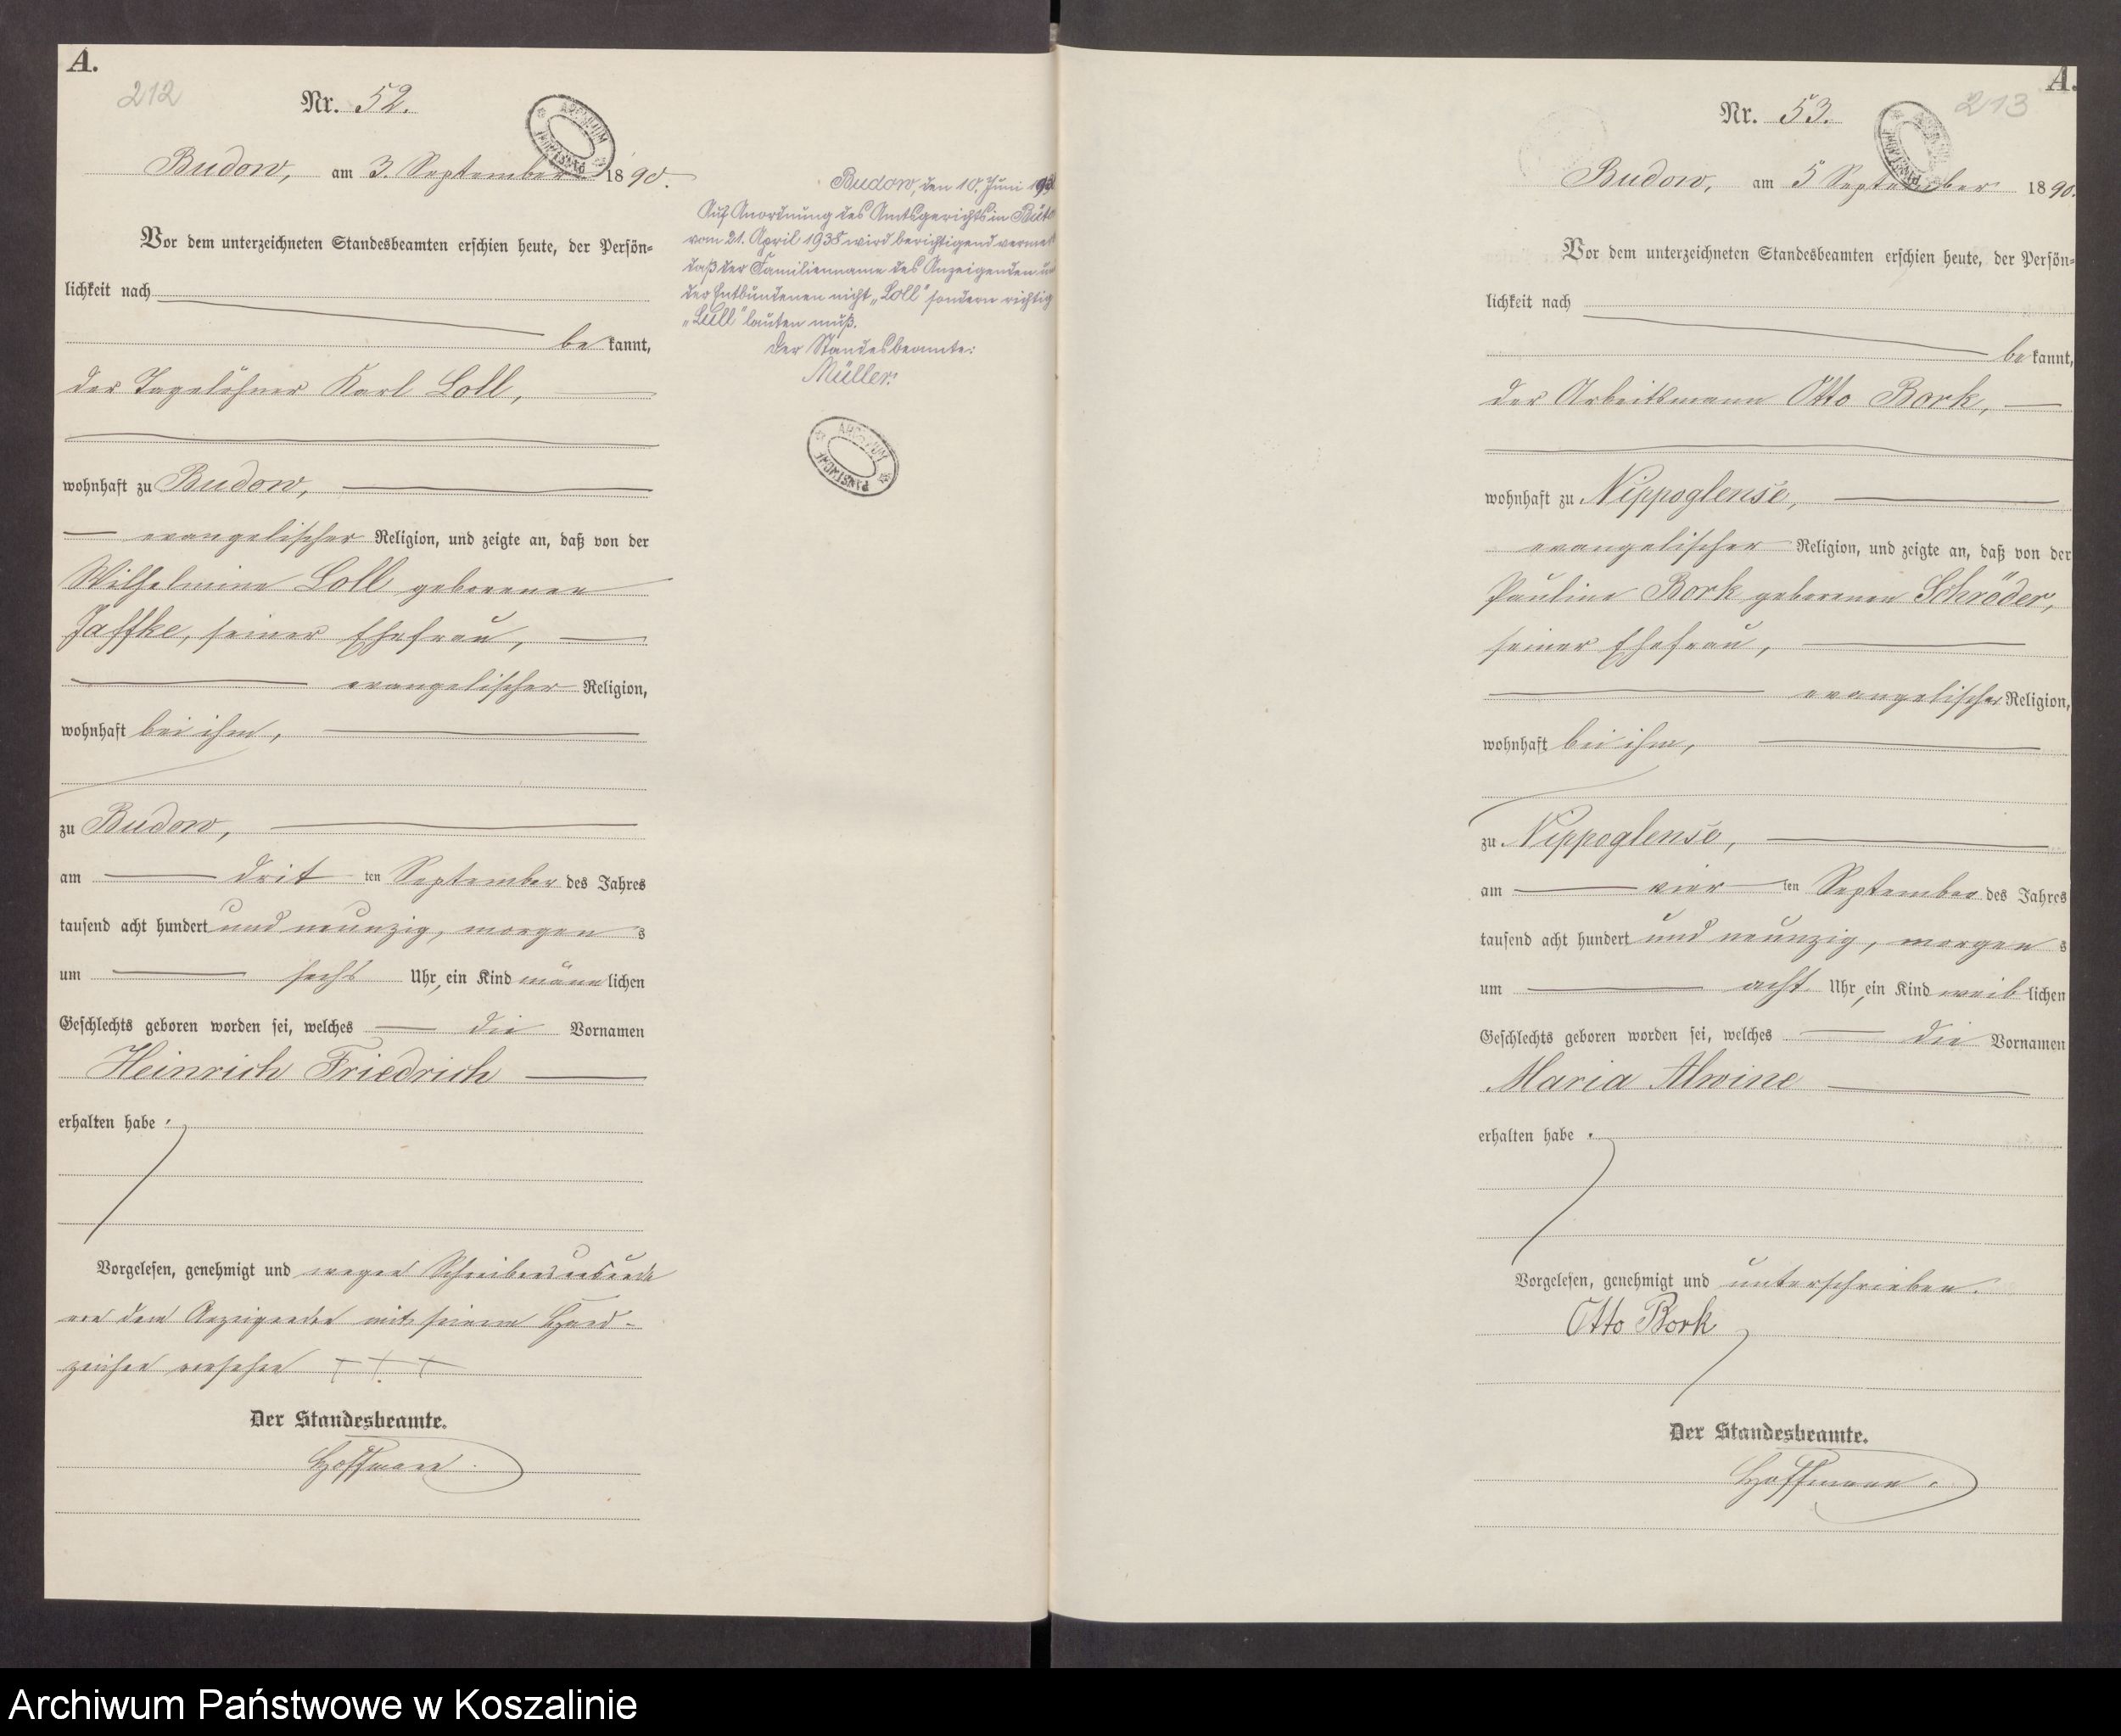 A.
212
Nr. 52.
ARCHIWUM PAŃSTWOWE
Budow, am 3. September 1890.
Vor dem unterzeichneten Standesbeamten erschien heute, der Persön-
lichkeit nach
be kannt,
der Tagelöhner Karl Loll,
wohnhaft zu Budow,
evangelischer Religion, und zeigte an, daß von der
Wilhelmine Loll geborenen
Jaffke, seiner Ehefrau,
evangelischer Religion,
wohnhaft bei ihm,
zu Budow,
am drit ten September des Jahres
tausend acht hundert und neunzig, morgen s
um sechs Uhr, ein Kind männ lichen
Geschlechts geboren worden sei, welches die Vornamen
Heinrich Friedrich
erhalten habe.
Vorgelesen, genehmigt und wegen Schreibensunkunde
von dem Anzeigenden mit seinem Hand-
zeichen versehen + + +
Der Standesbeamte.
Hoffmann.
Budow, den 10. Juni 193
Auf Anordnung des Amtsgerichts in Büto
vom 21. April 1938 wird berichtigend verme
daß der Familienname des Anzeigenden un
der Entbundenen nicht „Loll" sondern richtig
„Lüll" lauten muß.
Der Standesbeamte:
Müller.
ARCHIWUM PAŃSTWOWE
A.
213
Nr. 53.
ARCHIWUM PAŃSTWOWE
Budow, am 5 September 1890.
Vor dem unterzeichneten Standesbeamten erschien heute, der Persön-
lichkeit nach
be kannt,
der Arbeitsmann Otto Bork,
wohnhaft zu Nippoglense,
evangelischer Religion, und zeigte an, daß von der
Pauline Bork geborenen Schröder,
seiner Ehefrau,
evangelischer Religion,
wohnhaft bei ihm,
zu Nippoglense,
am vier ten September des Jahres
tausend acht hundert und neunzig, morgen s
um acht Uhr, ein Kind weib lichen
Geschlechts geboren worden sei, welches die Vornamen
Maria Alwine
erhalten habe.
Vorgelesen, genehmigt und unterschrieben.
Otto Bork
Der Standesbeamte.
Hoffmann.
Archiwum Państwowe w Koszalinie